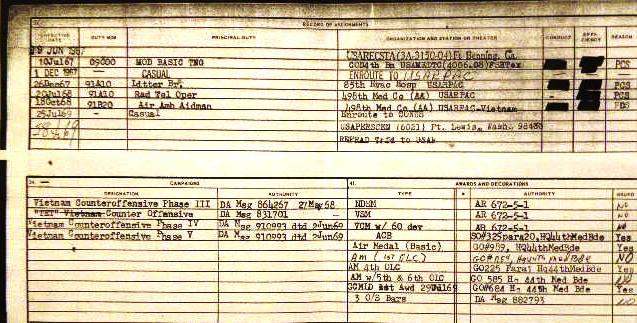 RECORD OF ASSIGNMENTS
EFFECTIVE DATE DUTY MOS PRINCIPAL DUTY ORGANIZATION AND STATION OR THEATER CONDUCT EFFICIENCY REASON
19 JUN 1967 USARECSTA (3A-3150-04) Ft Benning, Ga.
10Jul67 09000 MOD BASIC TNG PCS
1 DEC 1967 CASUAL ENROUTE TO USARPAC
26Dec67 91A10 Litter Br. 85th Evac Hosp USARPAC PCS
20Jul68 91A10 Rad Tel Oper 498th Med Co (AA) USARPAC PCS
18Oct68 91B20 Air Amb Aidman 498th Med Co (AA) USARPAC-Vietnam
25Jul69 Casual Enroute to CONUS
Ft. Lewis, Wash. 98430
39. CAMPAIGNS
DESIGNATION AUTHORITY
Vietnam Counteroffensive Phase III DA Msg 864267 27May68
"TET" Vietnam Counter Offensive DA Msg 831701
Vietnam Counteroffensive Phase IV DA Msg 910993 dtd 2Jun69
Vietnam Counteroffensive Phase V DA Msg 910993 dtd 2Jun69
41. AWARDS AND DECORATIONS
TYPE AUTHORITY ISSUED
NDSM AR 672-5-1 NO
VSM AR 672-5-1 NO
VCM w/ 60 dev AR 672-5-1 NO
ACB SO#325para20,HQ44thMedBde Yes
Air Medal (Basic) GO#959, HQ44thMedBde Yes
AM (1st OLC) NO
AM 4th OLC GO225 Para1 Hq44thMedBde Yes
AM w/5th & 6th OLC GO 585 Hq 44th Med Bde NO
GCMLD 1st Awd 29Jul69 GO#684 Hq 44th Med Bde Yes
3 O/S Bars DA Msg 882793 NO